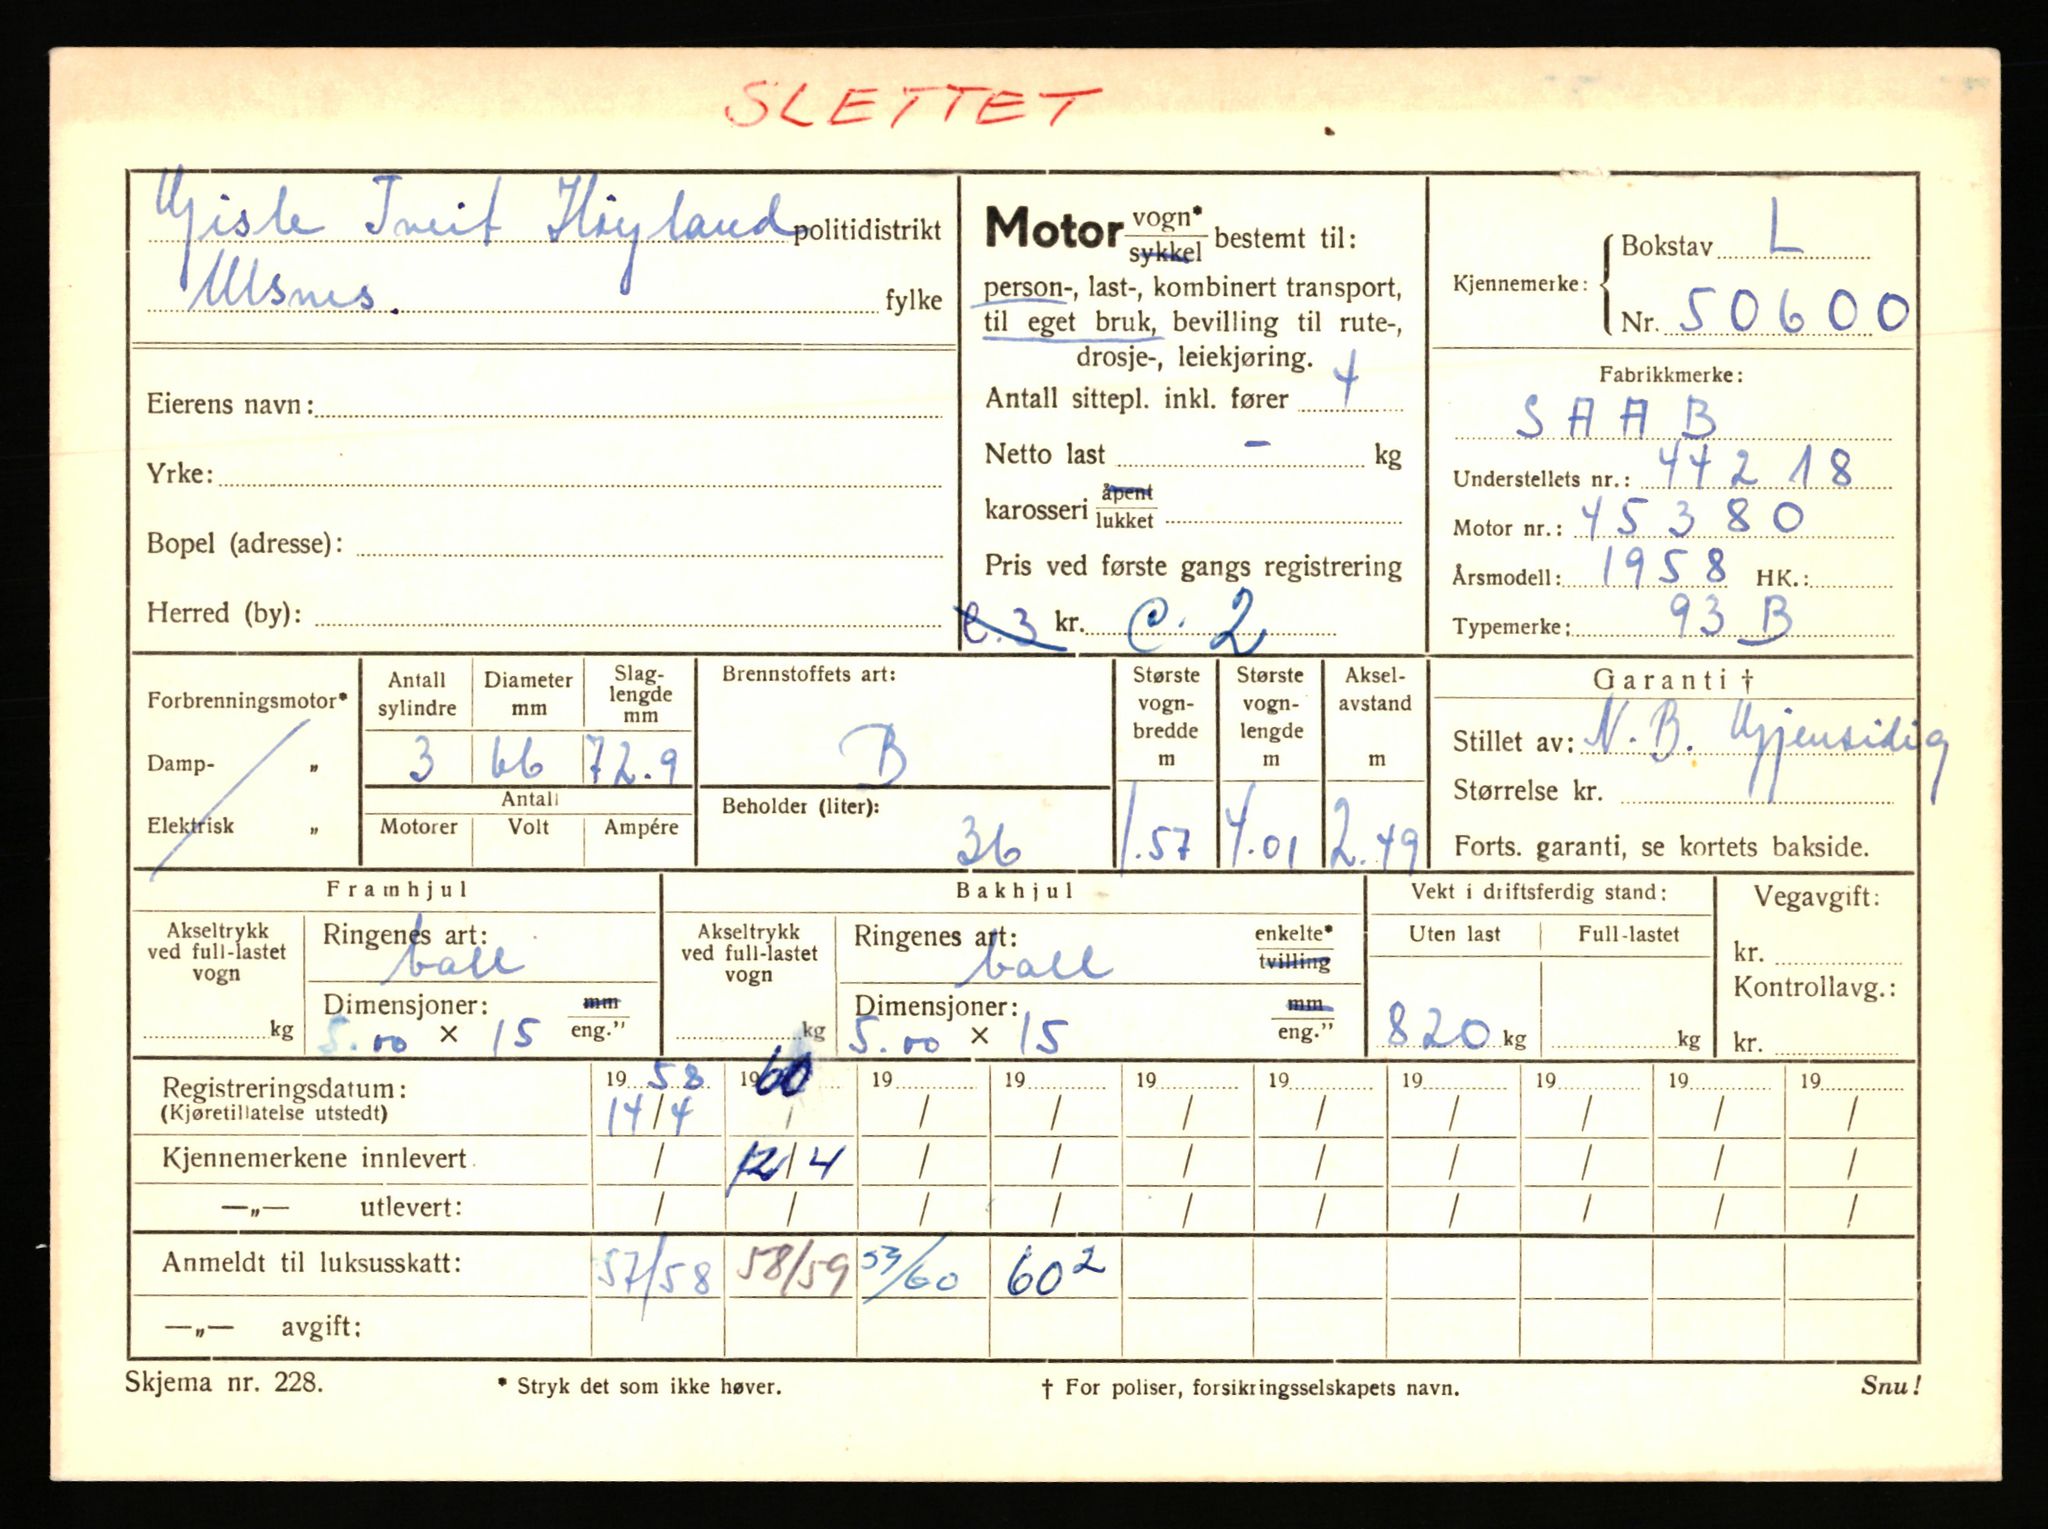 SLETTET
Gisle Tveit Höyland politidistrikt
Ulsnes. fylke
Eierens navn:
Yrke:
Bopel (adresse):
Herred (by):
Motor vogn* sykkel bestemt til:
person-, last-, kombinert transport,
til eget bruk, bevilling til rute-,
drosje-, leiekjøring.
Antall sittepl. inkl. fører 4
Netto last - kg
karosseri åpent lukket
Pris ved første gangs registrering
C.3 kr. C. 2
Kjennemerke: Bokstav L
Nr. 50600
Fabrikkmerke:
SAAB
Understellets nr.: 44218
Motor nr.: 45380
Årsmodell: 1958 HK.:
Typemerke: 93 B
Forbrenningsmotor*
Damp- „
Elektrisk „
Antall sylindre Diameter mm Slag-lengde mm
3 66 72.9
Antall
Motorer Volt Ampére
Brennstoffets art:
B
Beholder (liter):
36
Største vogn-bredde m
1.57
Største vogn-lengde m
4.01
Aksel-avstand m
2.49
Garanti †
Stillet av: N.B. Gjensidig
Størrelse kr.
Forts. garanti, se kortets bakside.
Framhjul
Akseltrykk ved full-lastet vogn
kg
Ringenes art:
ball
Dimensjoner: mm
5.00 × 15 eng."
Bakhjul
Akseltrykk ved full-lastet vogn
kg
Ringenes art: enkelte* tvilling
ball
Dimensjoner: mm
5.00 × 15 eng."
Vekt i driftsferdig stand:
Uten last Full-lastet
820 kg kg
Vegavgift:
kr.
Kontrollavg.:
kr.
Registreringsdatum: 19 58 19 60 19 19 19 19 19 19 19 19
(Kjøretillatelse utstedt) 14/4 / / / / / / / / /
Kjennemerkene innlevert / 12/4 / / / / / / / /
—„— utlevert: / / / / / / / / / /
Anmeldt til luksusskatt: 57/58 58/59 59/60 60 2
—„— avgift:
Skjema nr. 228. * Stryk det som ikke høver. † For poliser, forsikringsselskapets navn. Snu!